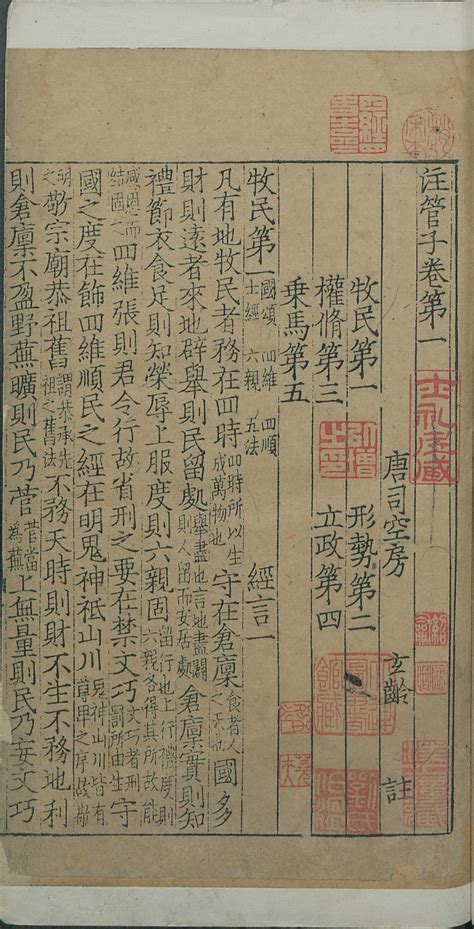 注管子卷第一
唐司空房 玄齡 註
牧民第一 形勢第二
權脩第三 立政第四
乗馬第五
牧民第一 國頌 四維 四順 士經 六親 五法 經言一
凡有地牧民者務在四時四時所以生成萬物也守在倉廩食者人之天也國多
財則遠者來地辟舉則民留處舉盡也言地盡闢則人留而安居處倉廩實則知
禮節衣食足則知榮辱上服度則六親固服行也上行禮度則六親各得其所故能
感恩而結固之四維張則君令行故省刑之要在禁文巧文巧者刑罰所由生守
國之度在飾四維順民之經在明鬼神祇山川鬼神山川皆有尊卑之序故敬
明之敬宗廟恭祖舊謂恭承先祖之舊法不務天時則財不生不務地利
則倉廩不盈野蕪曠則民乃菅菅當為蕪上無量則民乃妄文巧
士礼居藏